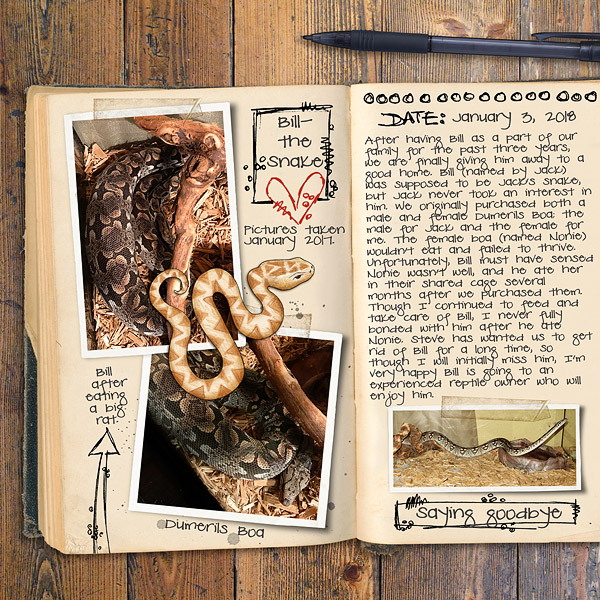 Bill-
the
Snake
Pictures taken
January 2017.
Bill
after
eating
a big
rat.
Dumerils Boa
DATE: January 3, 2018
After having Bill as a part of our
family for the past three years,
we are finally giving him away to a
good home. Bill (named by Jack)
was supposed to be Jack's snake,
but Jack never took an interest in
him. We originally purchased both a
male and female Dumerils Boa: the
male for Jack and the female for
me. The female boa (named Nonie)
wouldn't eat and failed to thrive.
Unfortunately, Bill must have sensed
Nonie wasn't well, and he ate her
in their shared cage several
months after we purchased them.
Though I continued to feed and
take care of Bill, I never fully
bonded with him after he ate
Nonie. Steve has wanted us to get
rid of Bill for a long time, so
though I will initially miss him, I'm
very happy Bill is going to an
experienced reptile owner who will
enjoy him.
saying goodbye